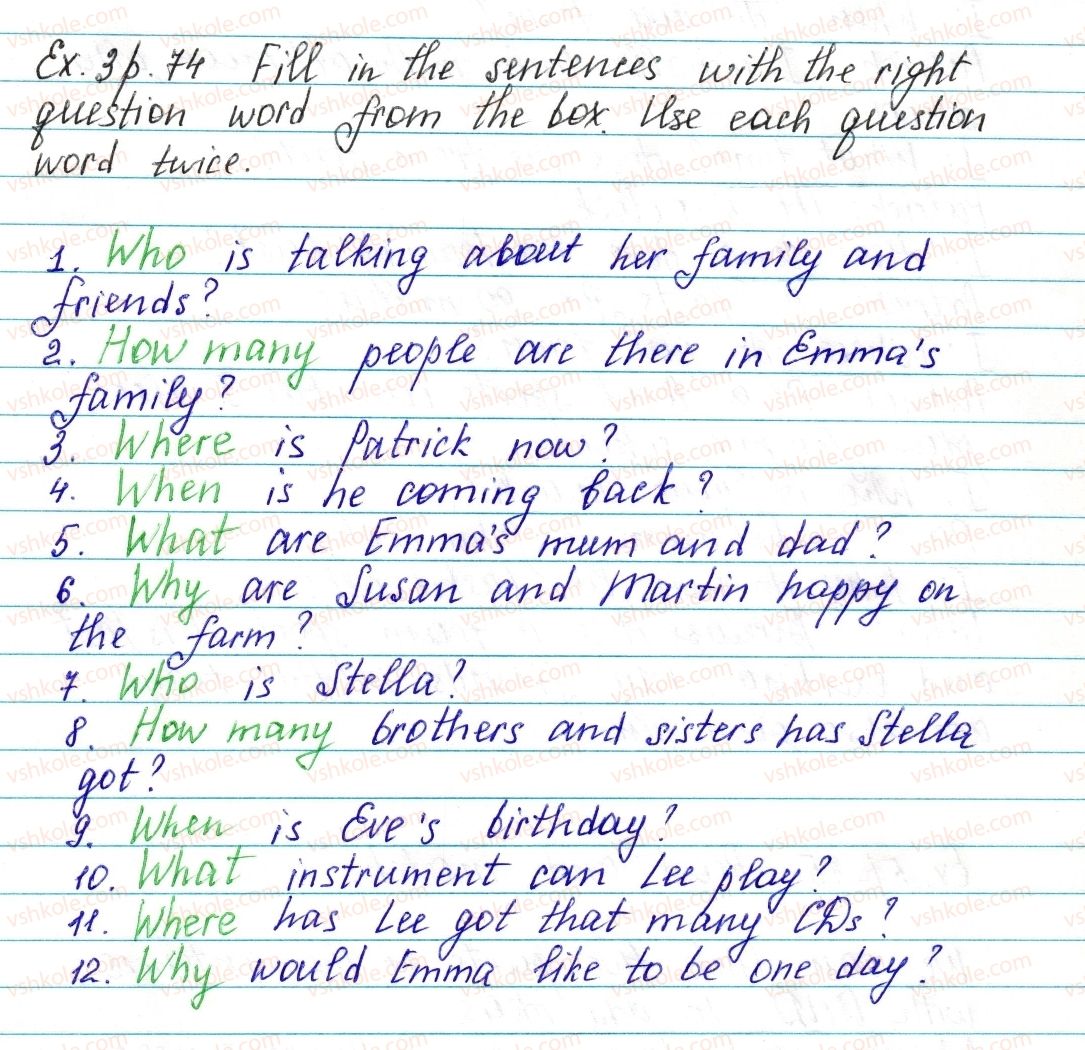 Ex. 3 p. 74 Fill in the sentences with the right
question word from the box. Use each question
word twice.
1. Who is talking about her family and
friends?
2. How many people are there in Emma's
family?
3. Where is Patrick now?
4. When is he coming back?
5. What are Emma's mum and dad?
6. Why are Susan and Martin happy on
the farm?
7. Who is Stella?
8. How many brothers and sisters has Stella
got?
9. When is Eve's birthday?
10. What instrument can Lee play?
11. Where has Lee got that many CDs?
12. Why would Emma like to be one day?
vshkole.com